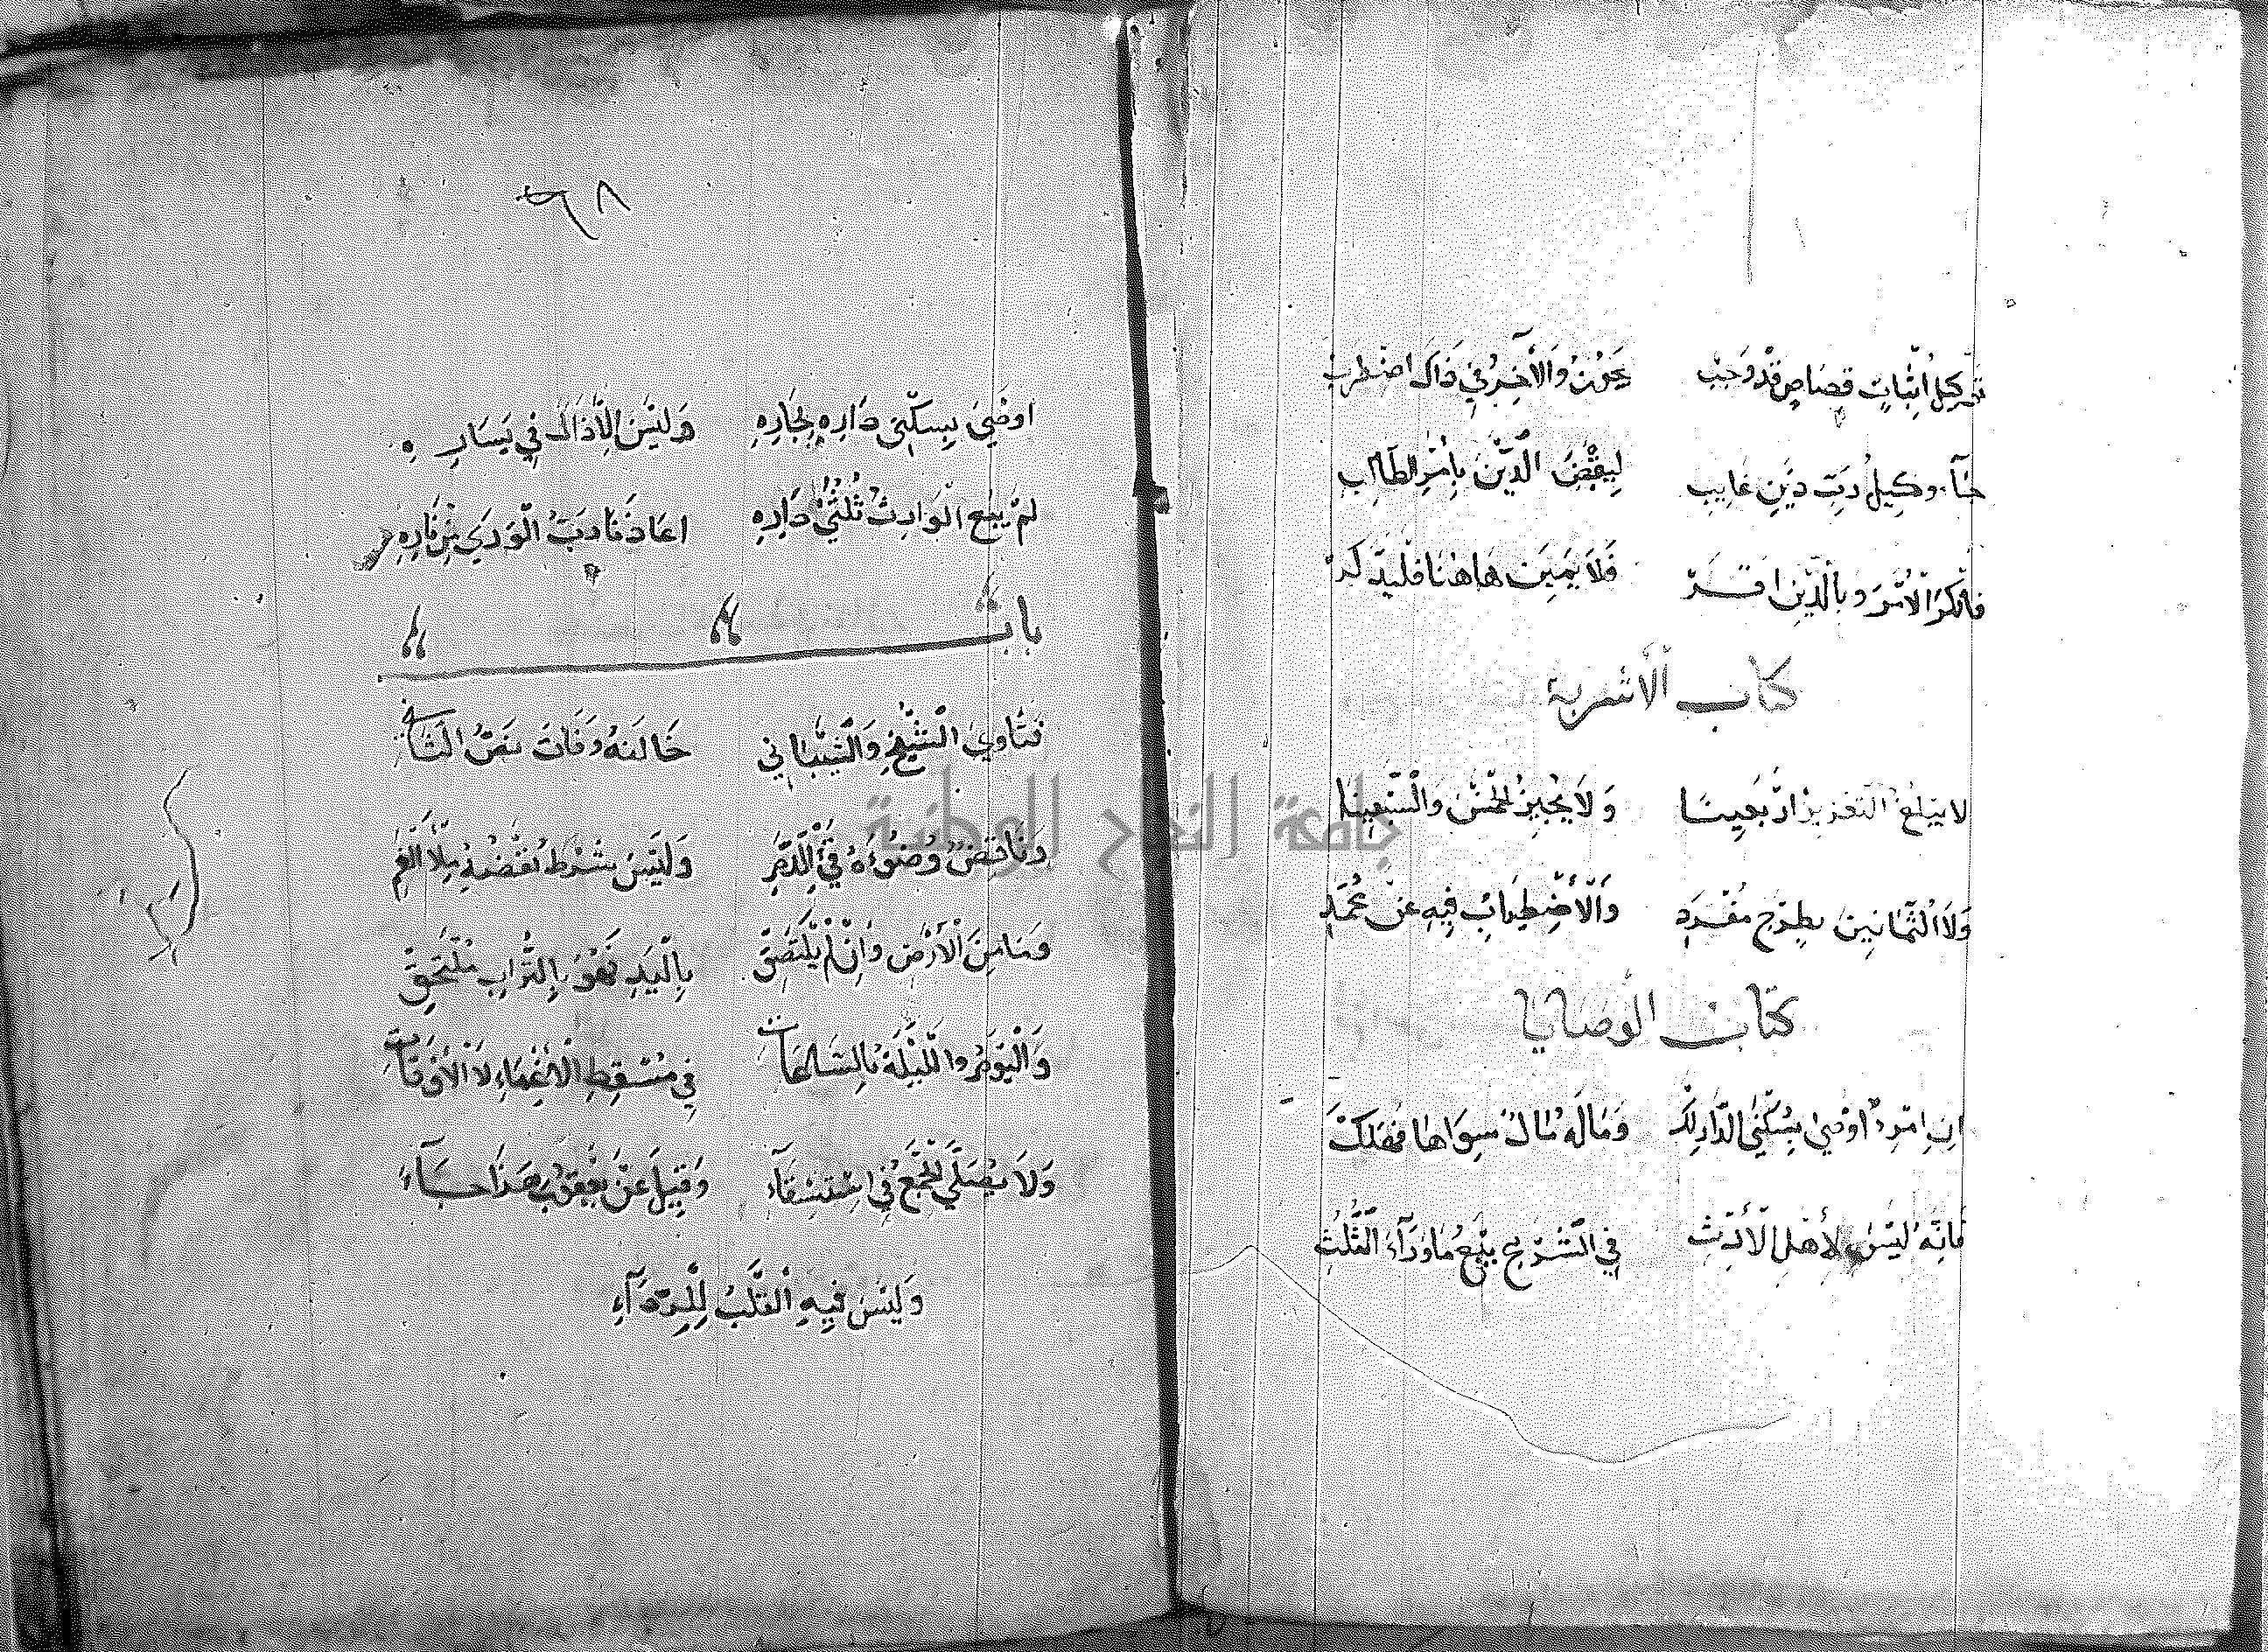 توكيل اثبات قصاص قد وجب يجوز والآخر في ذاك اضطرب
جآء وكيل رب دين غايب ليقبض الدين بامر الطالب
فانكر الأمر وبالدين اقر فلا يمين هاهنا فليدكر
كتاب الأشربة
لا يبلغ التعزير اربعينا ولا يجيز الخمس والسبعينا
ولا الثمانين بطرح مفرد والأضطراب فيه عن محمد
كتاب الوصايا
ان امرؤ اوصى بسكنى الدار لك وماله مال سواها فهلك
فانه ليس لأهل الأرث في الشرع بيع ماورآء الثلث
٦٨
اوصى بسكنى داره لجاره وليس الا ذاك في يساره
لم يبع الوارث ثلثي داره اعاذنا رب الورى من ناره
باب
فتاوى الشيخ والشيباني خالفه وفات نص الثاني
وناقض وضوءه قئ الدم وليس شرط نقضه ملأ الفم
وما من الأرض وان لم يلتصق باليد فهو بالتراب ملتحق
واليوم والليلة بالساعات في مسقط الأغماء لا الأوقات
ولا يصلى الجمع في استسقآء وقيل عن يعقوب هذا جآء
وليس فيه القلب للردآء
جامعة النجاح الوطنية